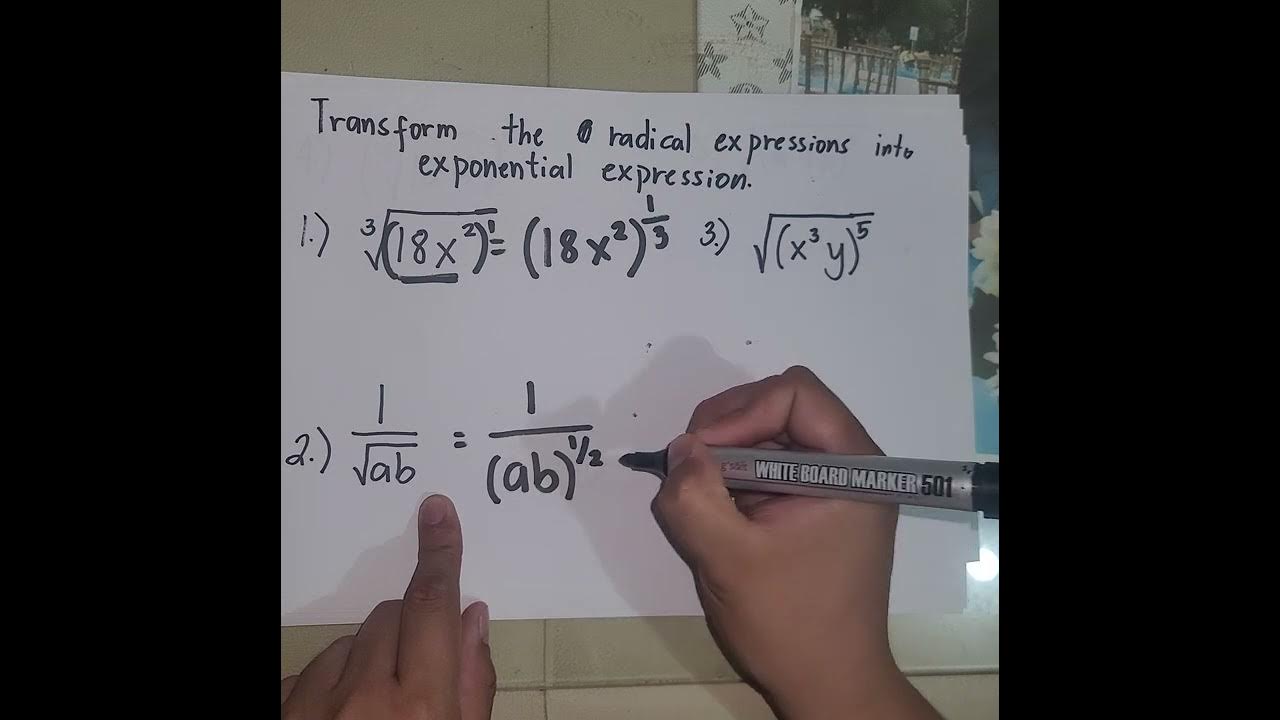 Transform the radical expressions into
exponential expression.
1.) ∛(18x²)¹ = (18x²)^1/3
3.) √(x³y)⁵
2.) 1/√ab = 1/(ab)^1/2
WHITE BOARD MARKER 501